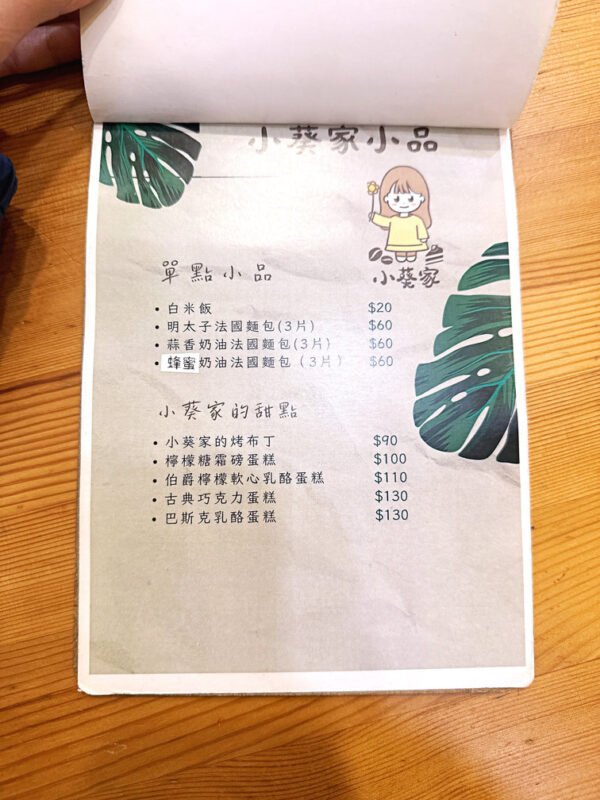 小葵家小品
小葵家
單點小品
• 白米飯 $20
• 明太子法國麵包(3片) $60
• 蒜香奶油法國麵包(3片) $60
• 蜂蜜奶油法國麵包(3片) $60
小葵家的甜點
• 小葵家的烤布丁 $90
• 檸檬糖霜磅蛋糕 $100
• 伯爵檸檬軟心乳酪蛋糕 $110
• 古典巧克力蛋糕 $130
• 巴斯克乳酪蛋糕 $130